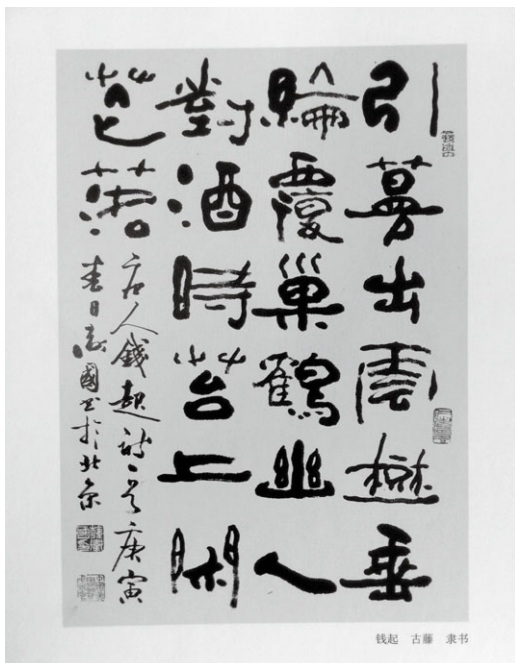 引蔓出雲樹垂
綸覆巢鶴幽人
對酒時苔上閑
花落
唐人錢起詩一首庚寅
春日國书於北京
钱起 古藤 隶书